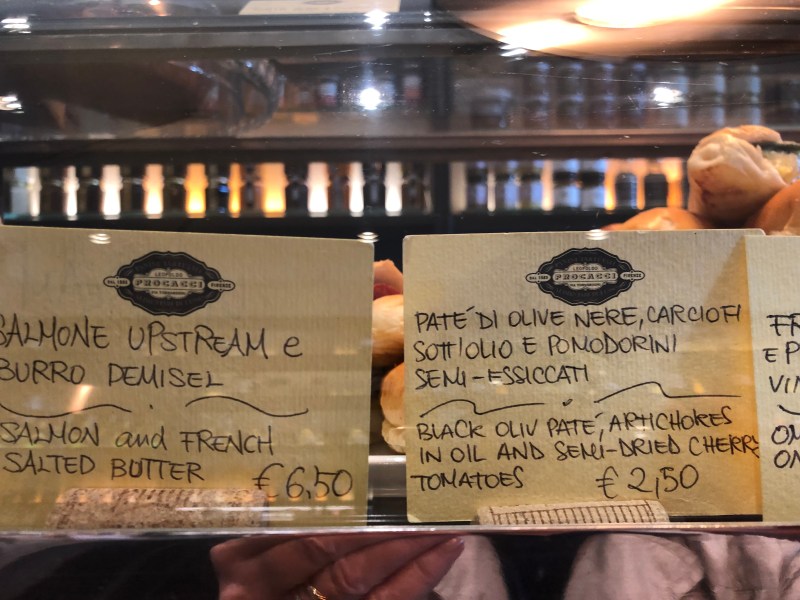 LEOPOLDO
DAL 1885 PROCACCI FIRENZE
SALMONE UPSTREAM e
BURRO DEMISEL
SALMON and FRENCH
SALTED BUTTER
€6,50
LEOPOLDO
DAL 1885 PROCACCI FIRENZE
PATE' DI OLIVE NERE, CARCIOFI
SOTT'OLIO E POMODORINI
SEMI-ESSICCATI
BLACK OLIV PATE', ARTICHOKES
IN OIL AND SEMI-DRIED CHERRY
TOMATOES
€2,50
FR
E P
VIN
OM
ON